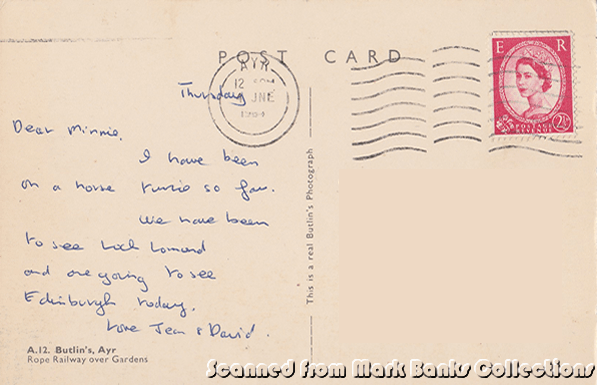 POST CARD
AYR
12 PM
JNE
E R
2½
POSTAGE
REVENUE
Thursday
Dear Minnie,
I have been
on a horse twice so far.
We have been
to see Loch Lomond
and are going to see
Edinburgh today.
Love Jean & David.
This is a real Butlin's Photograph
A.12. Butlin's, Ayr
Rope Railway over Gardens
Scanned from Mark Banks Collections